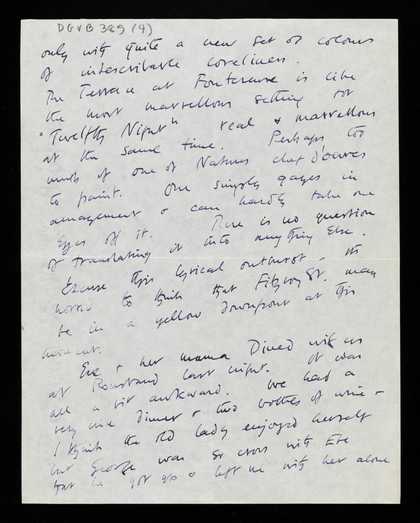 DGVB 389 (4)
only with quite a new set of colours
of indescribable loveliness.
The Terrace at Fontcreuse is like
the most marvellous setting for
"Twelfth Night" real & marvellous
at the same time. Perhaps too
much of one of Natures chef d'ouvres
to paint. One simply gazes in
amazement & can hardly take one
Eyes off it. There is no question
of translating it into anything Else.
Excuse this lyrical outburst - its
horrid to think that Fitzroy St. may
be in a yellow downpour at this
moment.
Eve & her mama Dined with us
at last night. It was
all a bit awkward. We had a
very nice Dinner & two bottles of wine -
I think the old lady enjoyed herself
but George was so cross with Eve
that he got up & left me with her alone